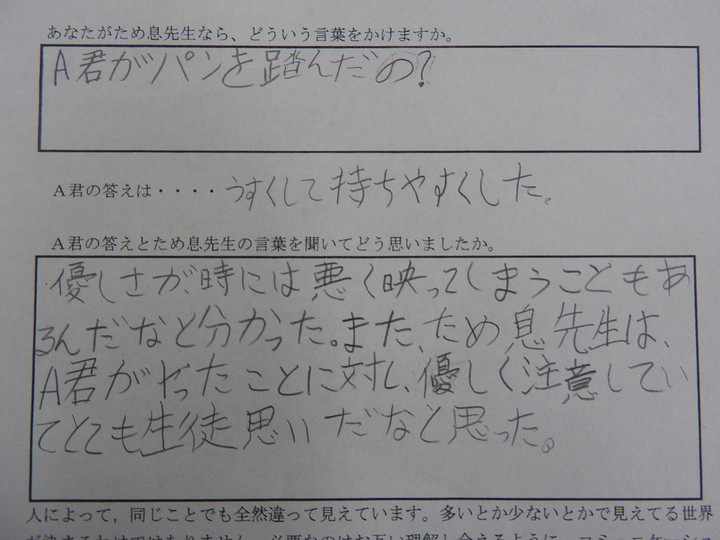 あなたがため息先生なら、どういう言葉をかけますか。
A君がパンを踏んだの?
A君の答えは・・・・うすくして持ちやすくした。
A君の答えとため息先生の言葉を聞いてどう思いましたか。
優しさが時には悪く映ってしまうこともあ
るんだなと分かった。また、ため息先生は、
A君がやったことに対し、優しく注意してい
てとても生徒思いだなと思った。
人によって，同じことでも全然違って見えています。多いとか少ないとかで見えてる世界